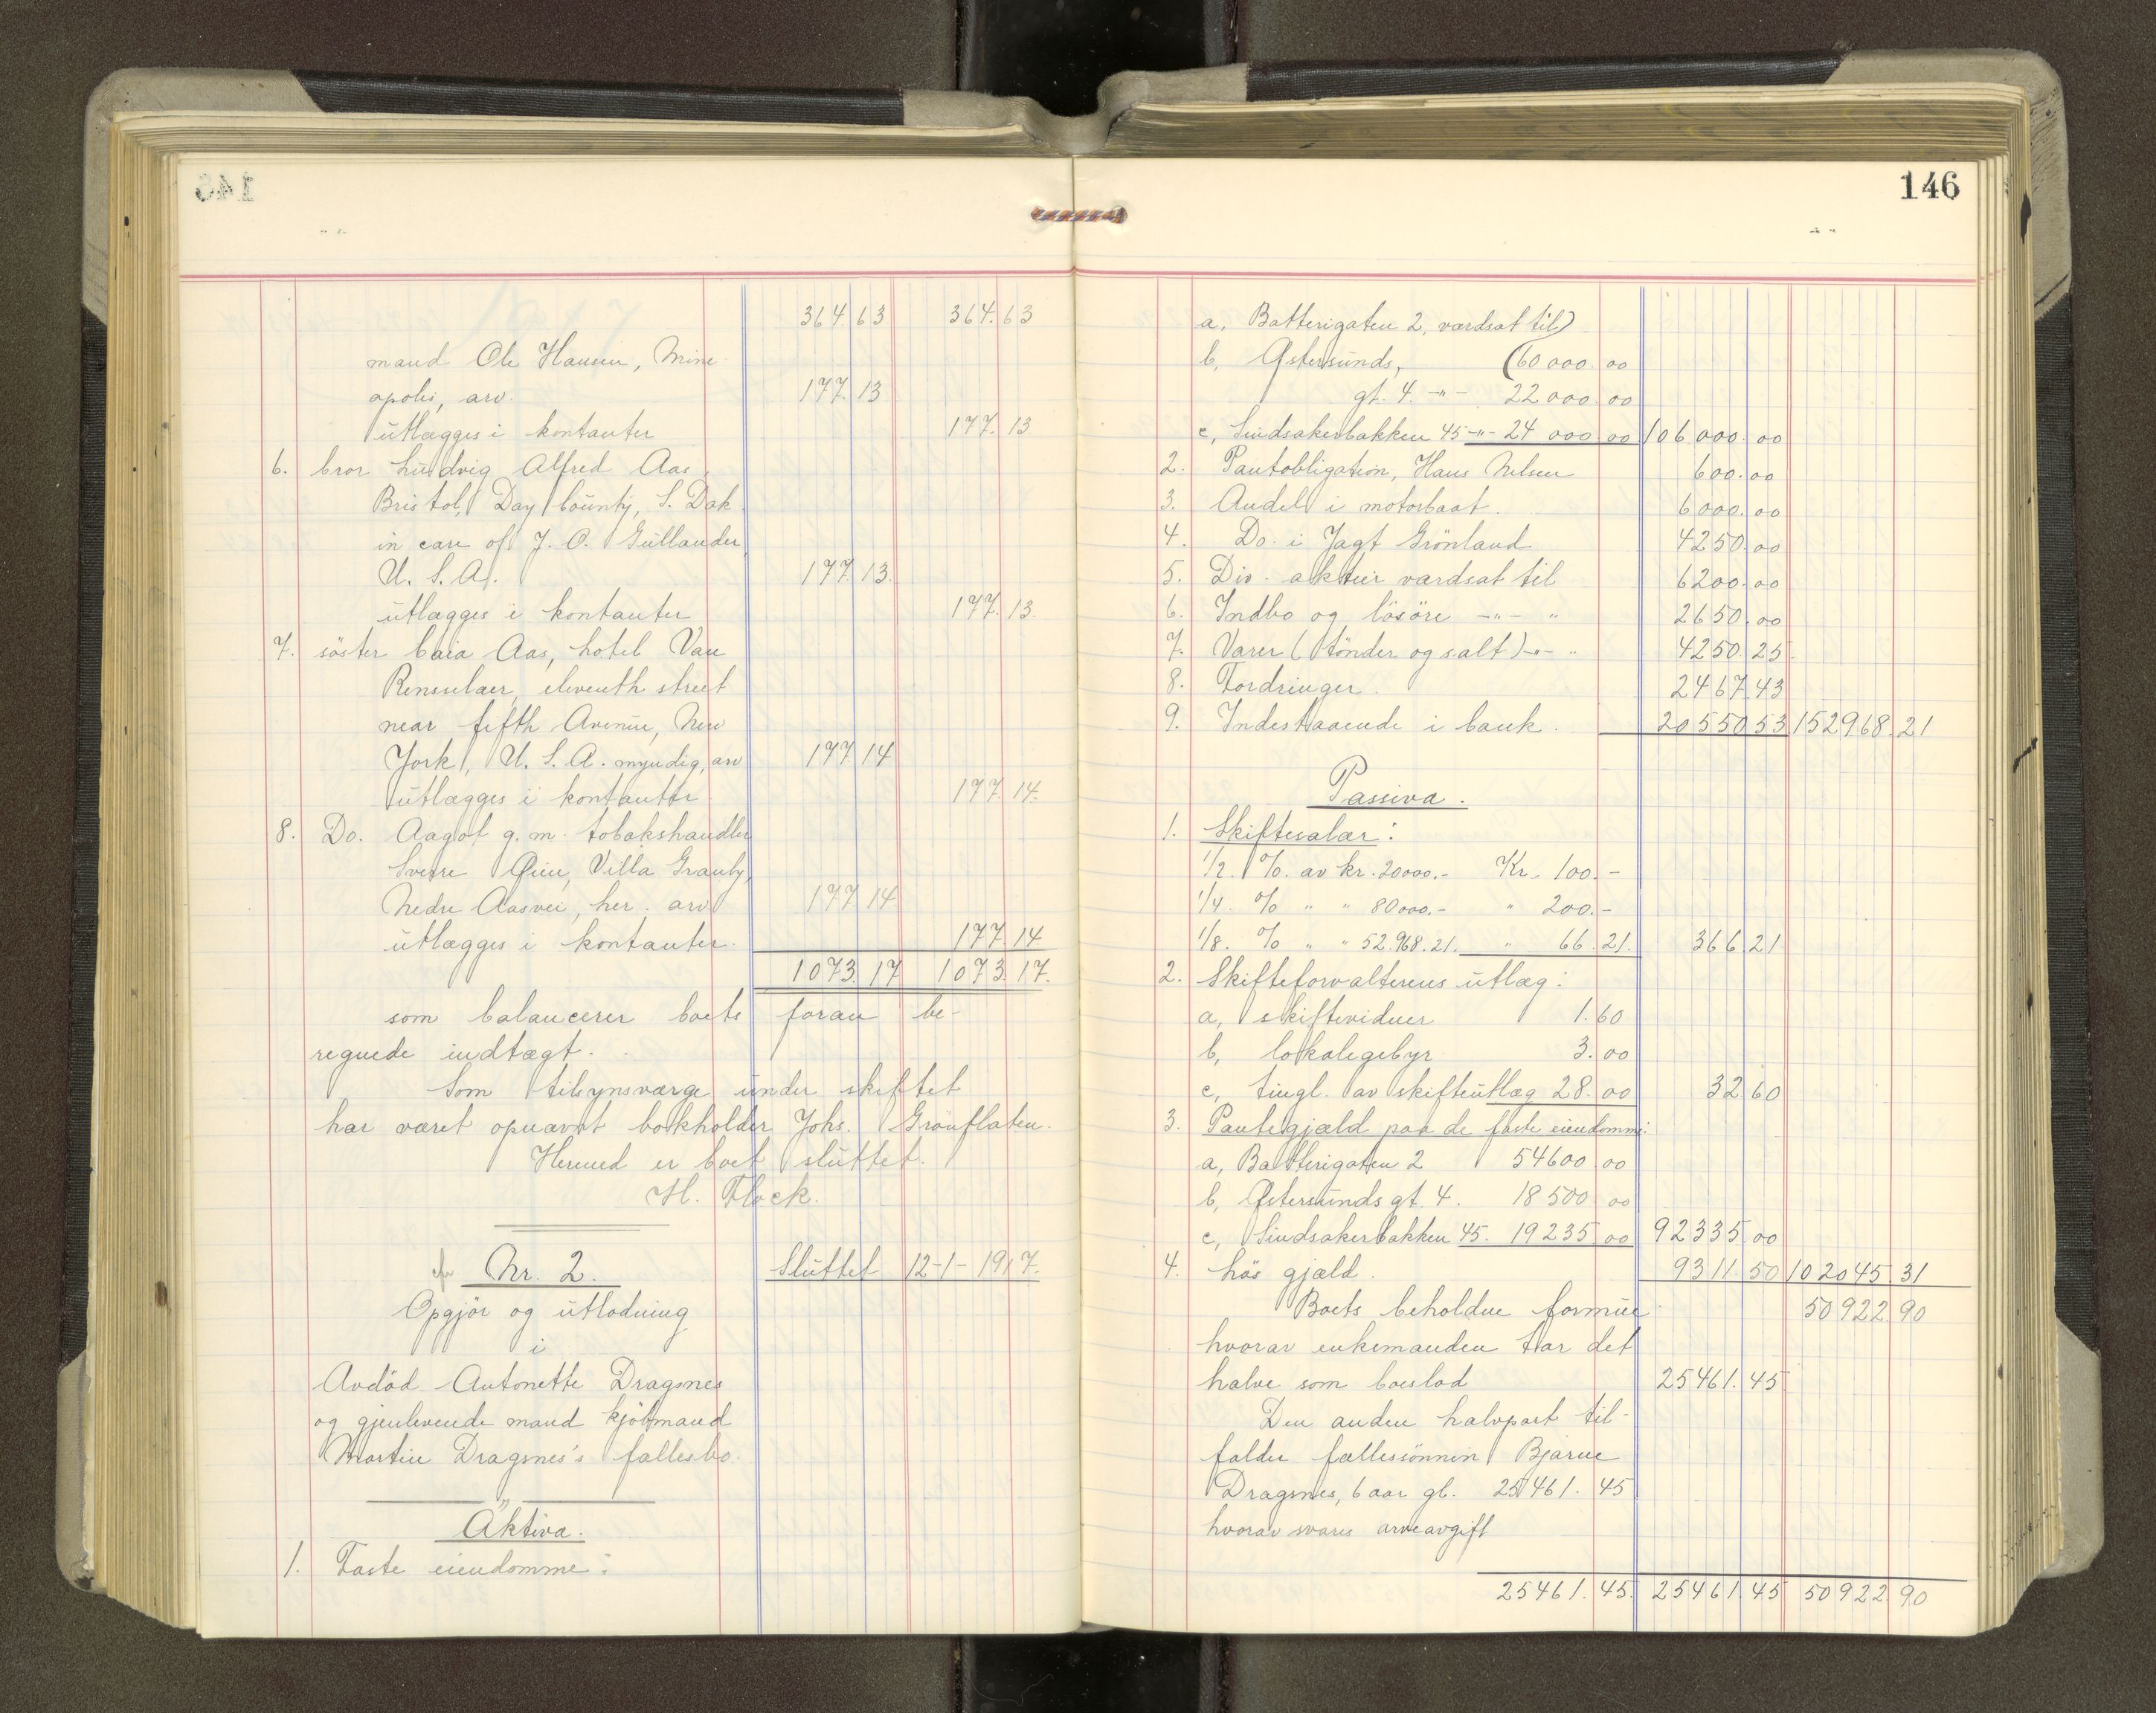 364.63 364.63
mand Ole Hansen, Mine
apolis, arv. 177.13
utlægges i kontanter 177.13
6. bror Ludvig Alfred Aas,
Bristol, Day County, S. Dak.
in care of J. O. Gullander,
U. S. A. 177.13.
utlægges i kontanter 177.13.
7. söster Caia Aas, hotel Van
Rensselaer, eleventh street
near fifth Avenue, New
York, U. S. A. myndig, arv 177.14
utlægges i kontanter 177.14.
8. Do. Aagot g. m. tobakshandler
Sverre Øien, Villa Granly,
Nedre Aasvei, her. arv 177.14
utlægges i kontanter. 177.14
1073.17 1073.17.
som balancerer boets foran be-
regnede indtægt.
Som tilsynsværge under skiftet
har været opnævnt bokholder Johs. Grönflaten.
Hermed er boet sluttet.
H. Flock.
Nr. 2. Sluttet 12-1-1917.
Opgjör og utlodning
i
Avdöd Antonette Dragsnes
og gjenlevende mand kjöbmand
Martin Dragsnes's fællesbo.
"
Aktiva.
1. Faste eiendomme:
146
a, Batterigaten 2, værdsat til)
b, Østersunds, (60 000.00
gt. 4. -"- 22 000.00
c, Sindsakerbakken 45 -"- 24 000.00 106 000.00
2. Pantobligation, Hans Nilsen 600.00
3. Andel i motorbaat. 6000.00
4. Do. i Jagt Grönland 4250.00
5. Div. aktier værdsat til 6200.00
6. Indbo og lösöre -"- " 2650.00
7. Varer (tönder og salt) -"- " 4250.25
8. Fordringer 2467.43
9. Indestaaende i bank. 20550.53 152968.21
Passiva.
1. Skiftesalær:
1/2. % av kr. 20000.- Kr. 100.-
1/4. % " " 80000.- " 200.-
1/8. % " " 52.968.21. " 66.21. 366.21
2. Skifteforvalterens utlæg:
a, skifteviduer 1.60
b, lokalegebyr 3.00
c, tingl. av skifteutlæg 28.00 32.60
3. Pantegjæld paa de faste eiendomme:
a, Batterigaten 2 54600.00
b, Østersunds gt. 4. 18500.00
c, Sindsakerbakken 45. 19235.00 92335.00
4. lös gjæld. 9311.50 102045.31
Boets beholdne formue 50922.90
hvorav enkemanden tar det
halve som boeslod 25461.45
Den anden halvpart til-
falder fællessönnen Bjarne
Dragsnes, 6 aar gl. 25461.45
hvorav svares arveavgift
25461.45. 25461.45 50922.90